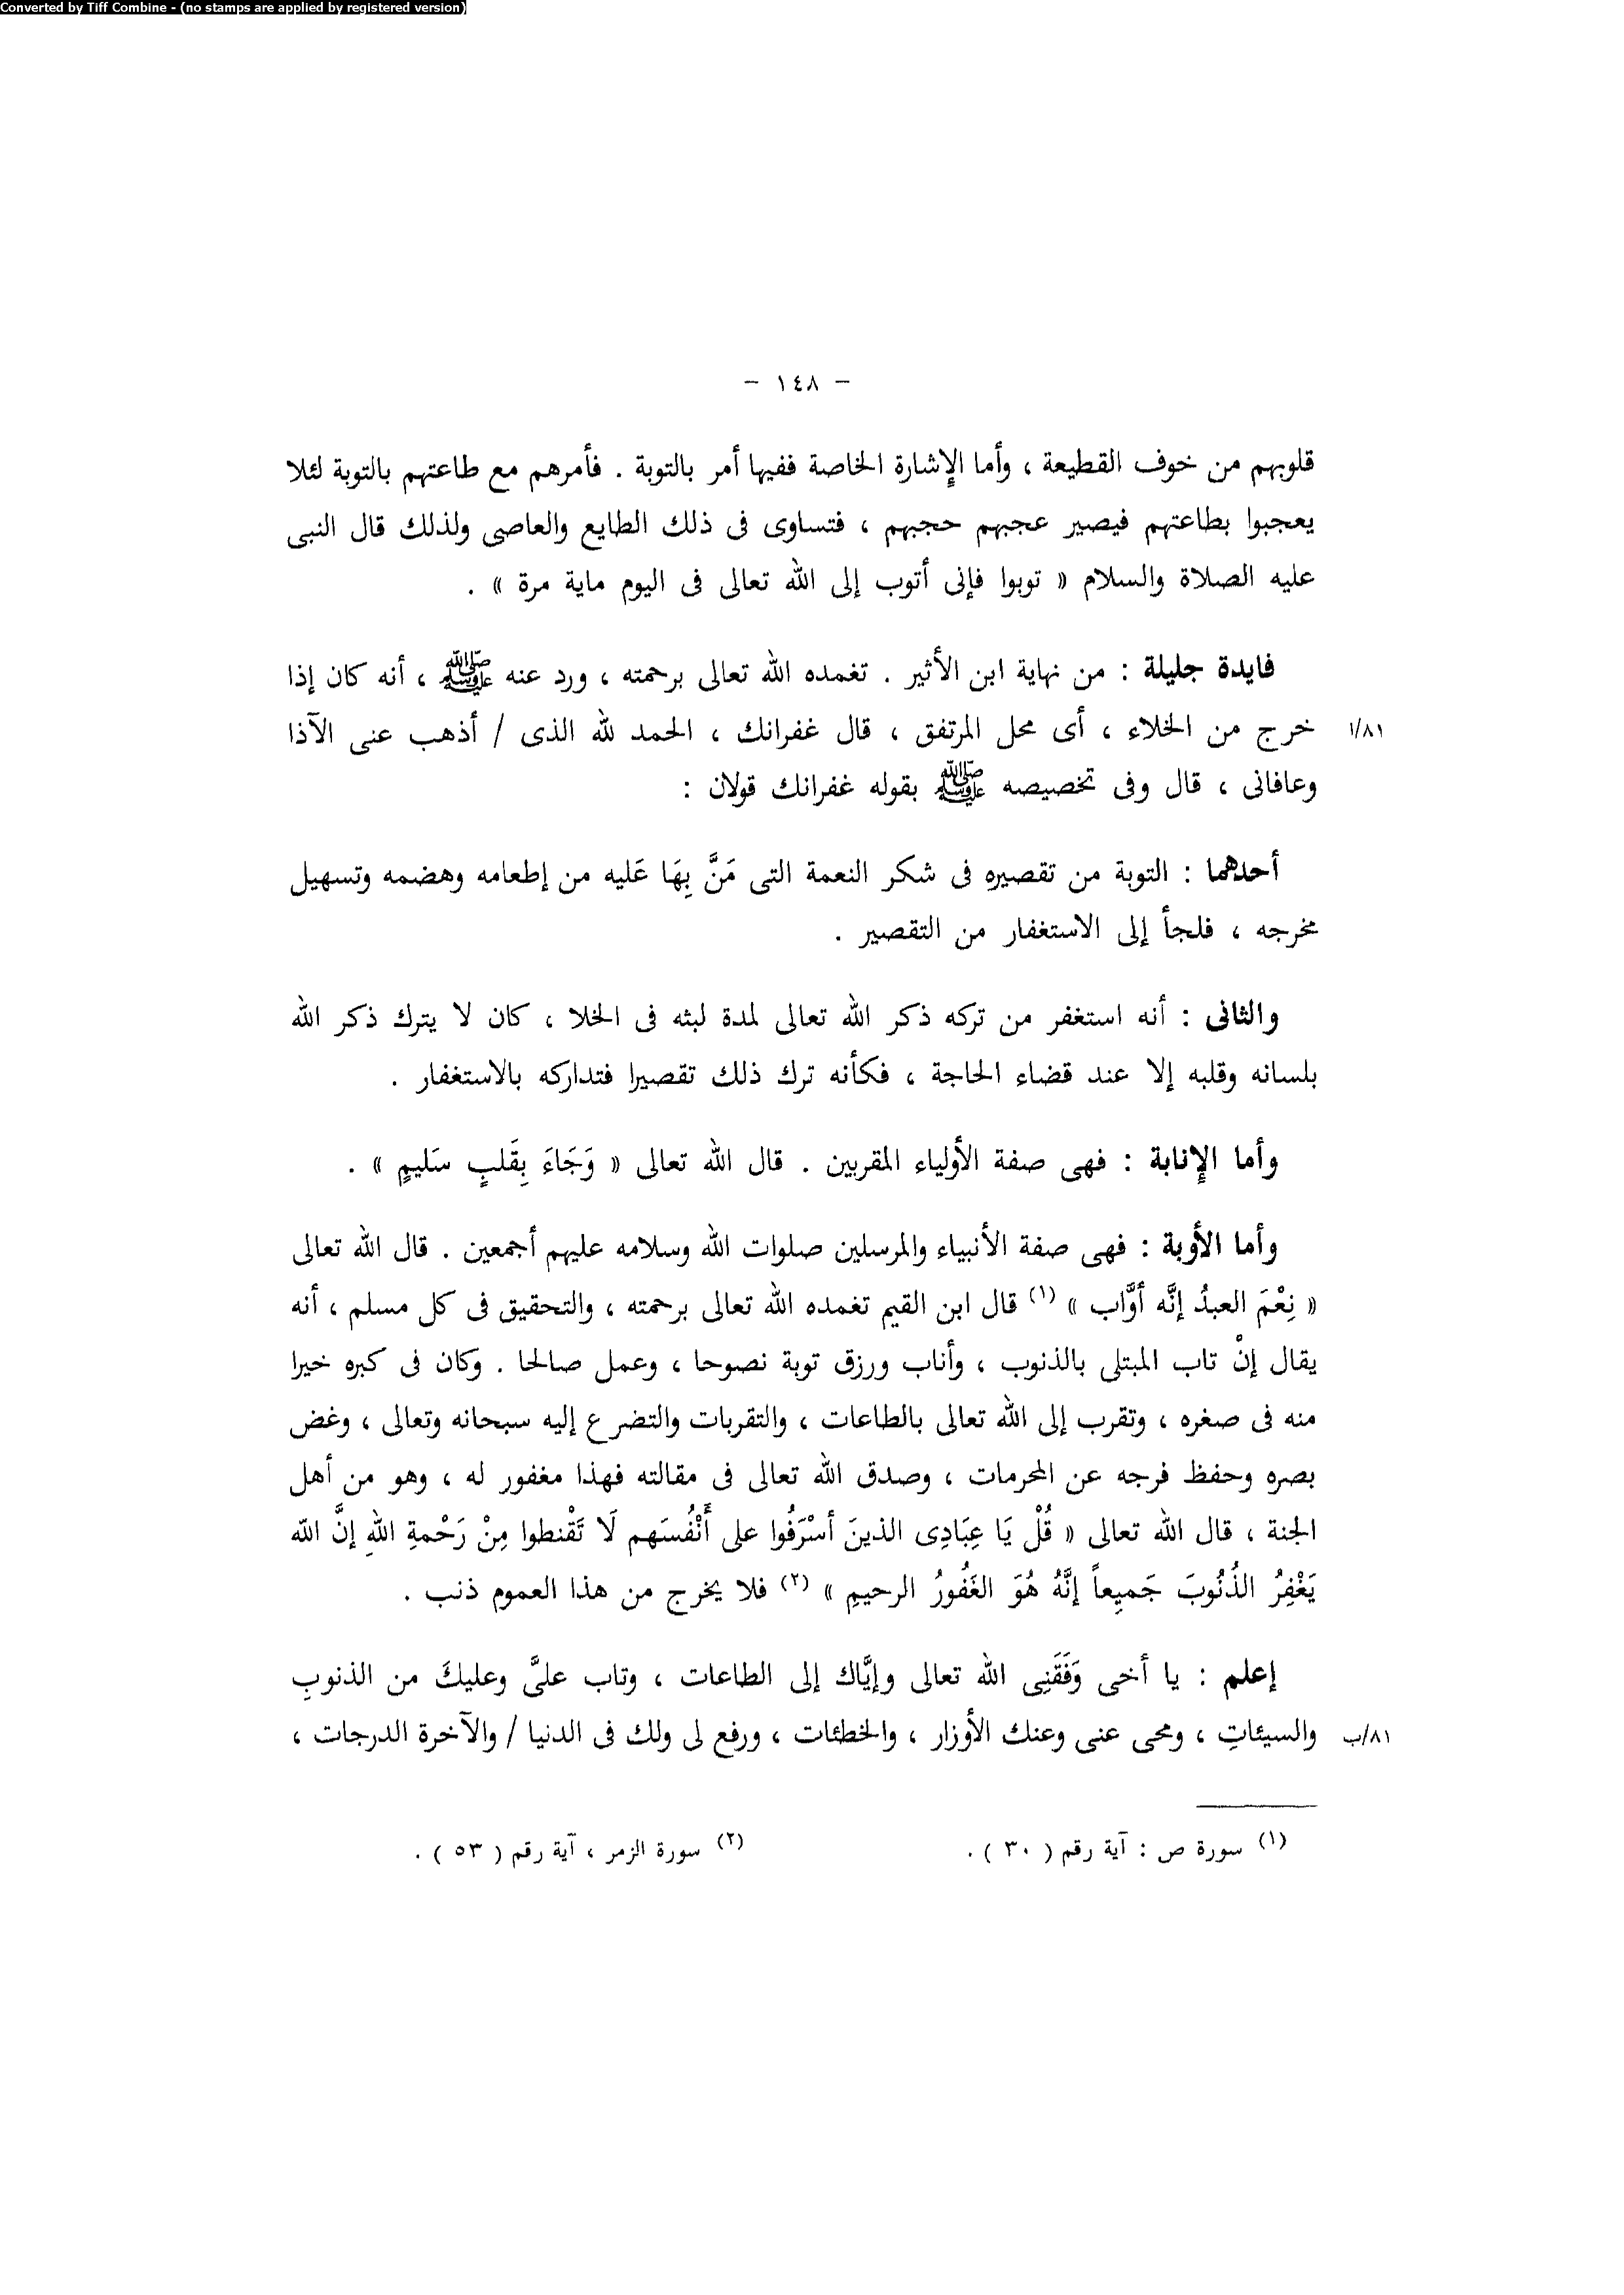 Converted by Tiff Combine - (no stamps are applied by registered version)
– ١٤٨ –
قلوبهم من خوف القطيعة ، وأما الإشارة الخاصة ففيها أمر بالتوبة . فأمرهم مع طاعتهم بالتوبة لئلا
يعجبوا بطاعتهم فيصير عجبهم حجبهم ، فتساوى فى ذلك الطايع والعاصى ولذلك قال النبى
عليه الصلاة والسلام « توبوا فإنى أتوب إلى الله تعالى فى اليوم ماية مرة » .
فايدة جليلة : من نهاية ابن الأثير . تغمده الله تعالى برحمته ، ورد عنه ﷺ ، أنه كان إذا
خرج من الخلاء ، أى محل المرتفق ، قال غفرانك ، الحمد لله الذى / أذهب عنى الآذا ٨١/ا
وعافانى ، قال وفى تخصيصه ﷺ بقوله غفرانك قولان :
أحدهما : التوبة من تقصيره فى شكر النعمة التى مَنَّ بِهَا عَليه من إطعامه وهضمه وتسهيل
مخرجه ، فلجأ إلى الاستغفار من التقصير .
والثانى : أنه استغفر من تركه ذكر الله تعالى لمدة لبثه فى الخلا ، كان لا يترك ذكر الله
بلسانه وقلبه إلا عند قضاء الحاجة ، فكأنه ترك ذلك تقصيرا فتداركه بالاستغفار .
وأما الإنابة : فهى صفة الأولياء المقربين . قال الله تعالى « وَجَاءَ بِقَلبٍ سَليمٍ » .
وأما الأوبة : فهى صفة الأنبياء والمرسلين صلوات الله وسلامه عليهم أجمعين . قال الله تعالى
« نِعْمَ العبدُ إنَّه أوَّاب » (١) قال ابن القيم تغمده الله تعالى برحمته ، والتحقيق فى كل مسلم ، أنه
يقال إنْ تاب المبتلى بالذنوب ، وأناب ورزق توبة نصوحا ، وعمل صالحا . وكان فى كبره خيرا
منه فى صغره ، وتقرب إلى الله تعالى بالطاعات ، والتقربات والتضرع إليه سبحانه وتعالى ، وغض
بصره وحفظ فرجه عن المحرمات ، وصدق الله تعالى فى مقالته فهذا مغفور له ، وهو من أهل
الجنة ، قال الله تعالى « قُلْ يَا عِبَادِى الذينَ أسْرَفُوا على أَنْفُسَهم لَا تَقْنطوا مِنْ رَحْمةِ اللهِ إنَّ الله
يَغْفِرُ الذُنُوبَ جَميِعاً إنَّهُ هُوَ الغَفُورُ الرحيمِ » (٢) فلا يخرج من هذا العموم ذنب .
إعلم : يا أخى وَفَقَنِى الله تعالى وإيَّاك إلى الطاعات ، وتاب علىَّ وعليكَ من الذنوبِ
والسيئاتِ ، ومحى عنى وعنك الأوزار ، والخطئات ، ورفع لى ولك فى الدنيا / والآخرة الدرجات ، ٨١/ب
(١) سورة ص : آية رقم ( ٣٠ ) .
(٢) سورة الزمر ، آية رقم ( ٥٣ ) .